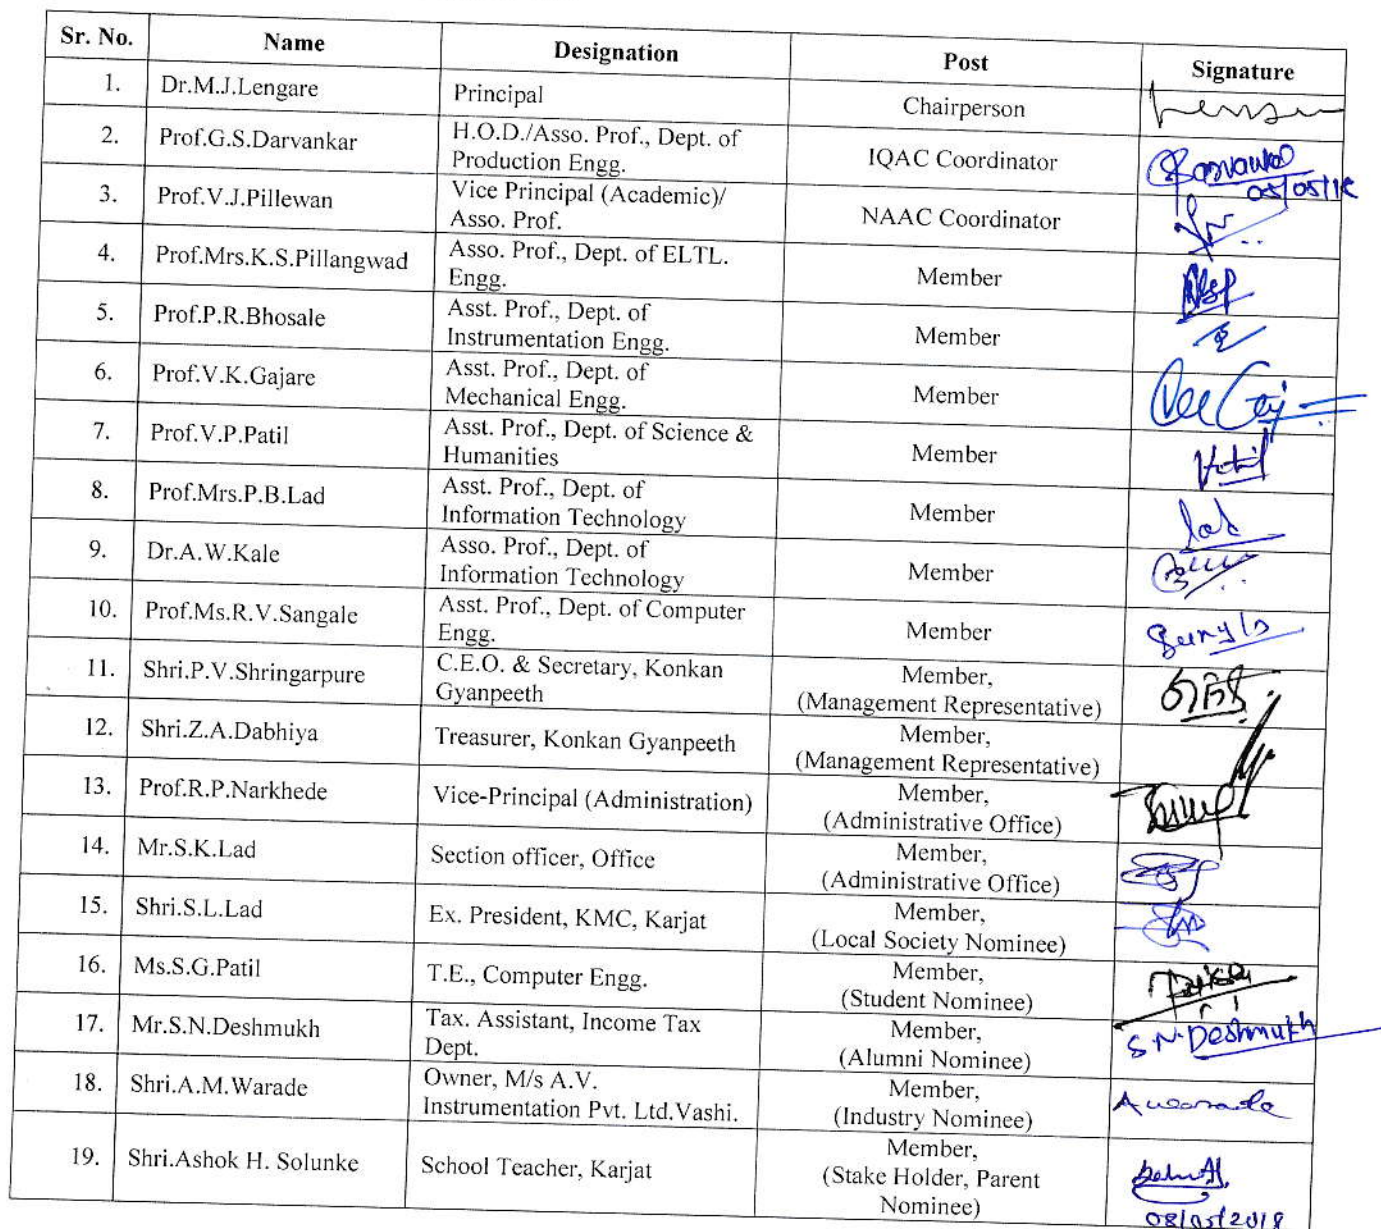 Sr. No. Name Designation Post Signature
1. Dr.M.J.Lengare Principal Chairperson
2. Prof.G.S.Darvankar H.O.D./Asso. Prof., Dept. of
Production Engg. IQAC Coordinator
05/05/18
3. Prof.V.J.Pillewan Vice Principal (Academic)/
Asso. Prof. NAAC Coordinator
4. Prof.Mrs.K.S.Pillangwad Asso. Prof., Dept. of ELTL.
Engg. Member
5. Prof.P.R.Bhosale Asst. Prof., Dept. of
Instrumentation Engg. Member
6. Prof.V.K.Gajare Asst. Prof., Dept. of
Mechanical Engg. Member
7. Prof.V.P.Patil Asst. Prof., Dept. of Science &
Humanities Member
8. Prof.Mrs.P.B.Lad Asst. Prof., Dept. of
Information Technology Member
Lad
9. Dr.A.W.Kale Asso. Prof., Dept. of
Information Technology Member
10. Prof.Ms.R.V.Sangale Asst. Prof., Dept. of Computer
Engg. Member
11. Shri.P.V.Shringarpure C.E.O. & Secretary, Konkan
Gyanpeeth Member,
(Management Representative)
12. Shri.Z.A.Dabhiya Treasurer, Konkan Gyanpeeth Member,
(Management Representative)
13. Prof.R.P.Narkhede Vice-Principal (Administration) Member,
(Administrative Office)
14. Mr.S.K.Lad Section officer, Office Member,
(Administrative Office)
15. Shri.S.L.Lad Ex. President, KMC, Karjat Member,
(Local Society Nominee)
16. Ms.S.G.Patil T.E., Computer Engg. Member,
(Student Nominee)
17. Mr.S.N.Deshmukh Tax. Assistant, Income Tax
Dept. Member,
(Alumni Nominee)
S.N.Deshmukh
18. Shri.A.M.Warade Owner, M/s A.V.
Instrumentation Pvt. Ltd.Vashi. Member,
(Industry Nominee)
19. Shri.Ashok H. Solunke School Teacher, Karjat Member,
(Stake Holder, Parent
Nominee)
08/05/2018